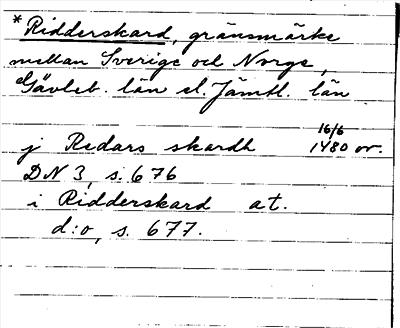 *Ridderskard, gränsmärke
mellan Sverige och Norge,
Gävleb. län el. Jämtl. län
16/6
j Redars skardh 1480 or.
DN 3, s. 676
i Ridderskard at.
d:o, s. 677.